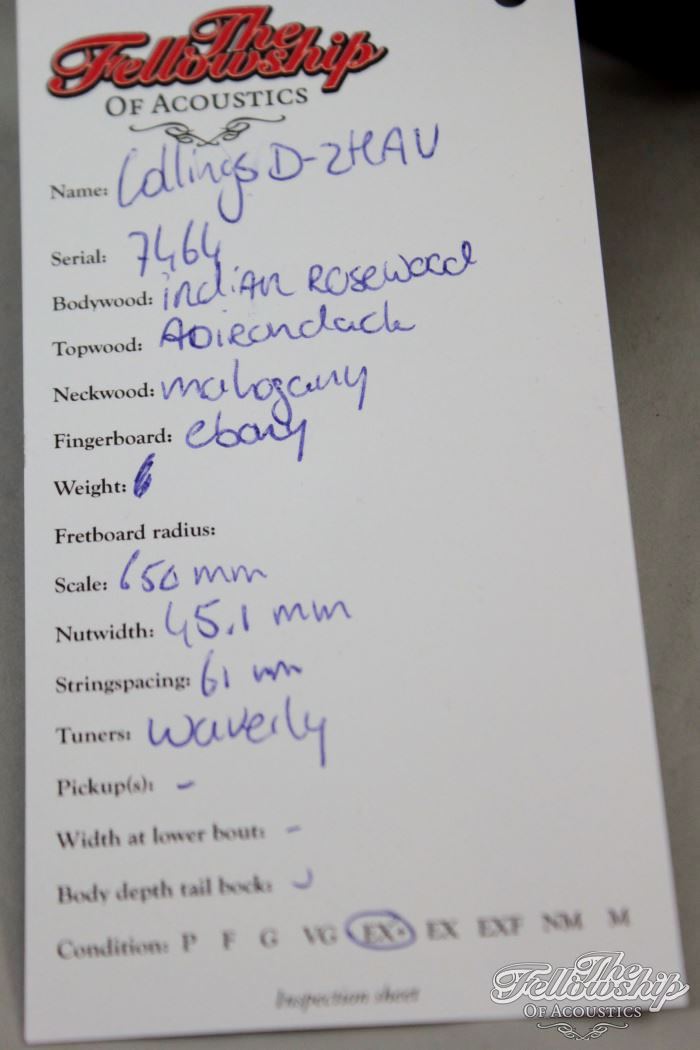 The
Fellowship
OF ACOUSTICS
Name: Collings D-2HAV
Serial: 7464
Bodywood: indiAn Rosewood
Topwood: ADirondack
Neckwood: mahogany
Fingerboard: ebony
Weight:
Fretboard radius:
Scale: 650 mm
Nutwidth: 45.1 mm
Stringspacing: 61 mm
Tuners: Waverly
Pickup(s): -
Width at lower bout: -
Body depth tail bock: -
Condition: P F G VG EX- EX EXF NM M
Inspection sheet
The
Fellowship
OF ACOUSTICS